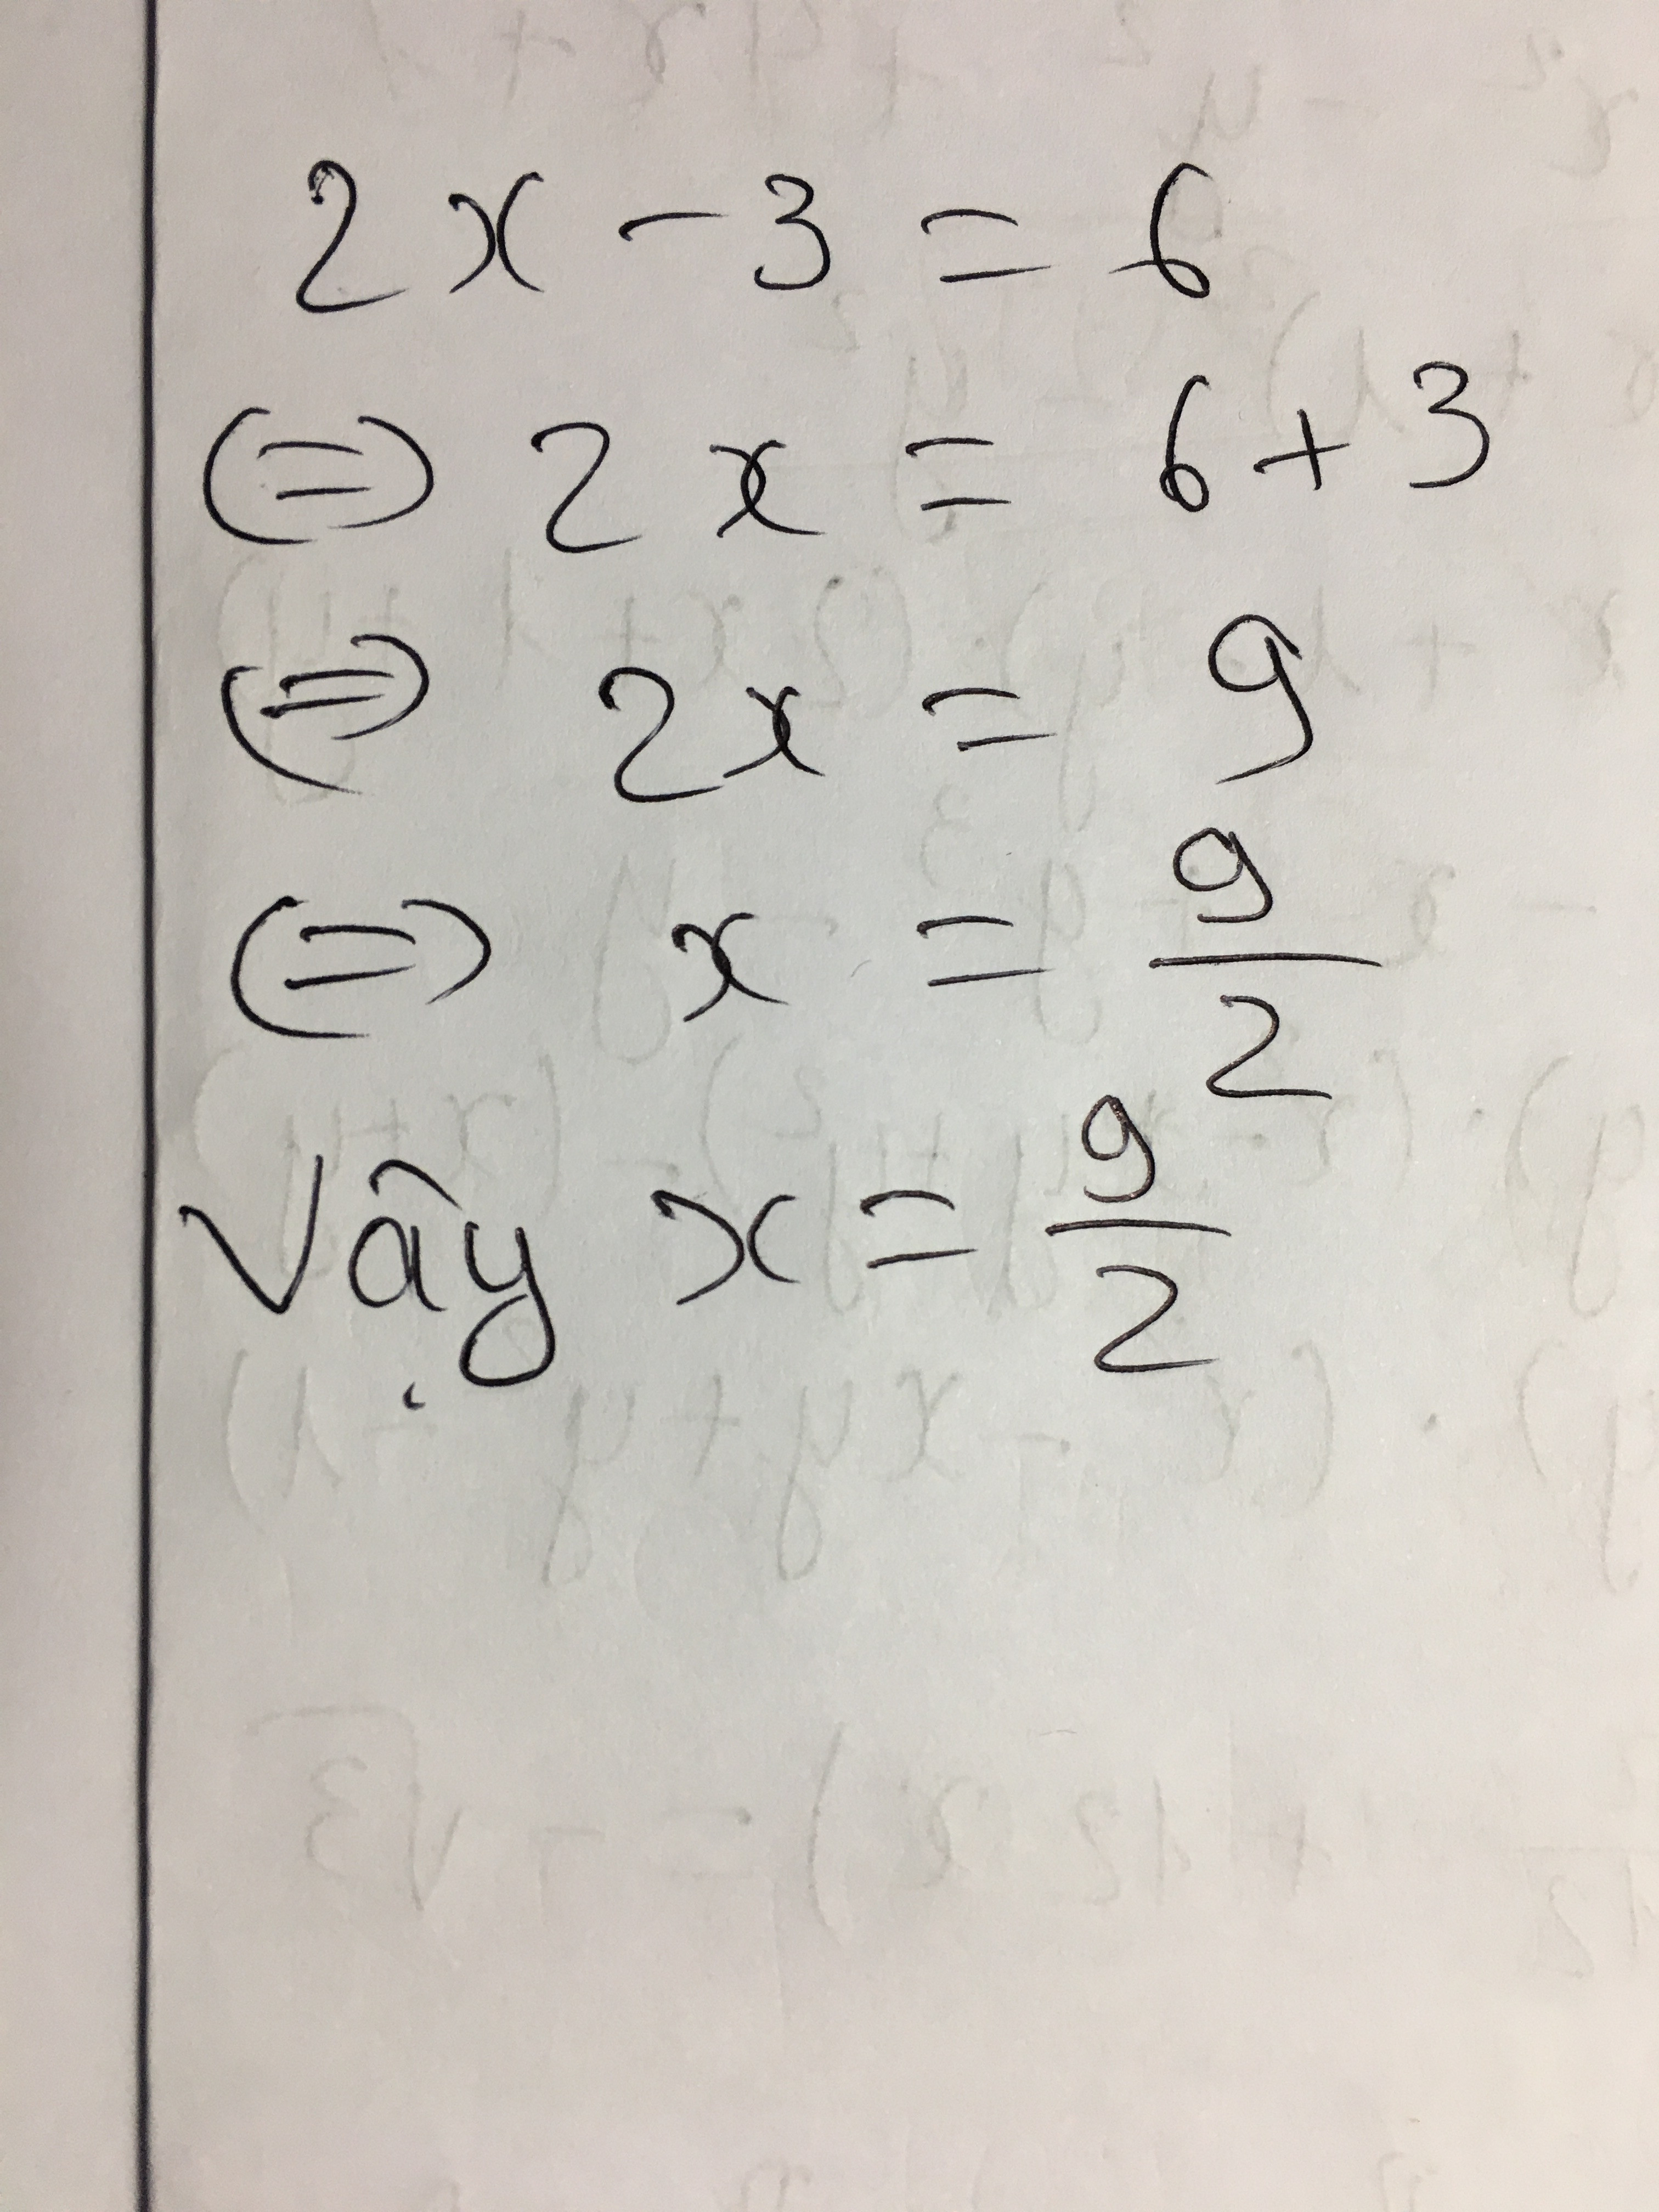 2x - 3 = 6
(=) 2x = 6 + 3
(=) 2x = 9
(=) x = 9/2
Vậy x = 9/2